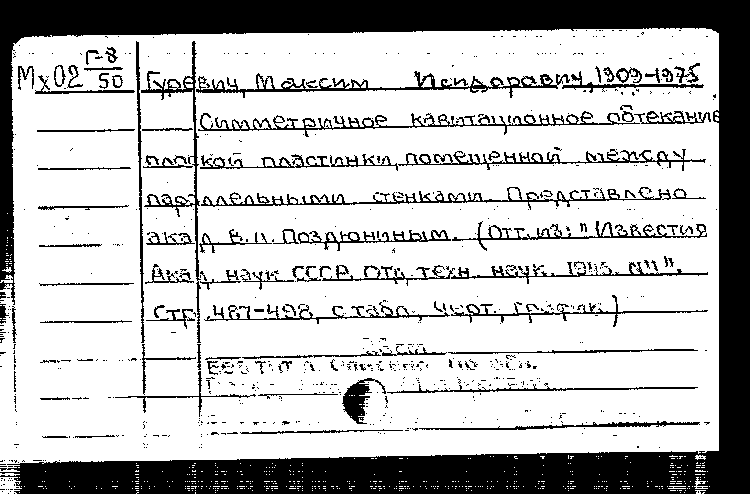 Мх02 Г-8
50
Гуревич, Максим Исидорович, 1909-1975
Симметричное кавитационное обтекание
плоской пластинки, помещенной между
параллельными стенками. Представлено
акад. В.Л. Поздюниным. (Отт. из: "Известия
Акад. наук СССР. Отд. техн. наук. 1946. №11".
Стр. 487-498, с табл., черт., график.)
23 cm.
Без тит. л. Описано по обл.